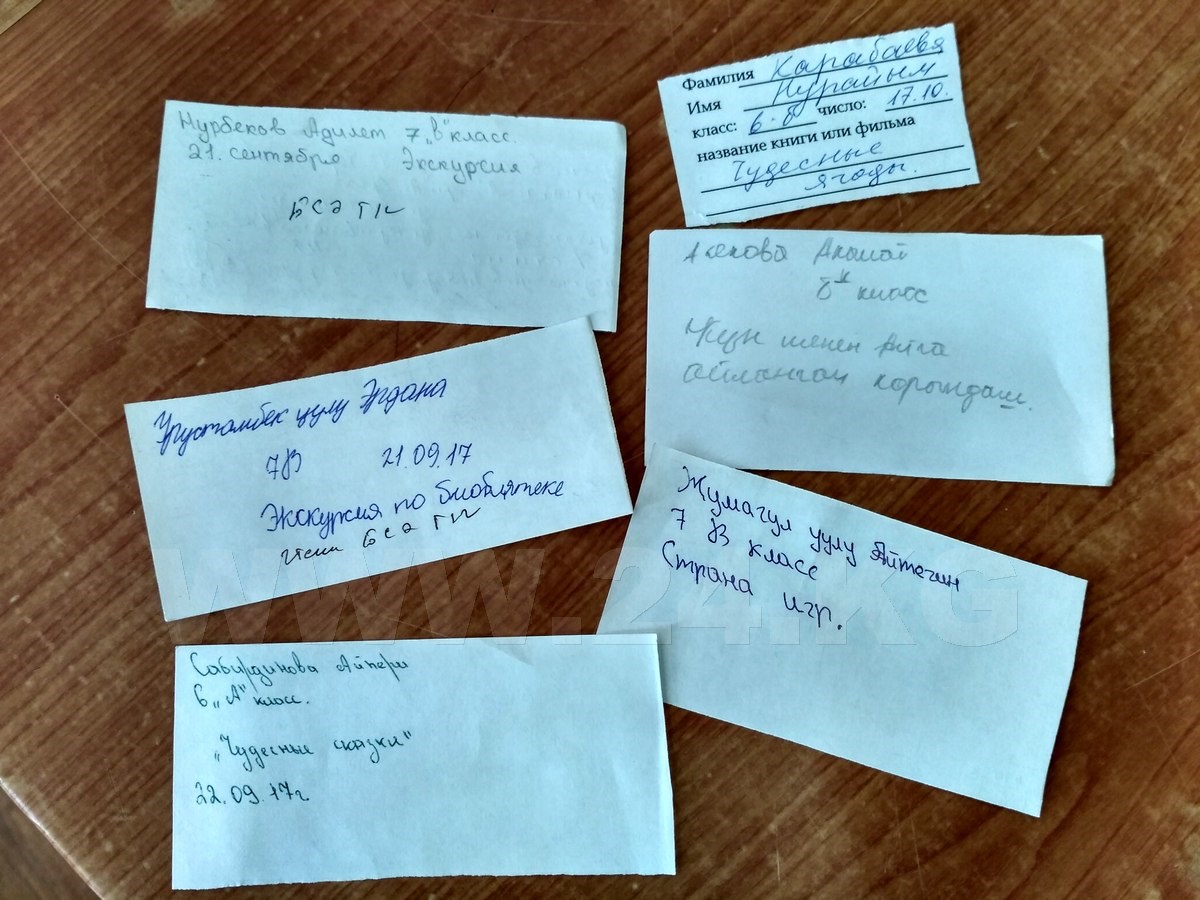 Нурбеков Адилет 7 „в" класс
21. сентября Экскурсия
Фамилия Карабаева
Имя Нурайым
класс: 6-б число: 17.10.
название книги или фильма
Чудесные
ягоды.
Акмай
класс
айланган карындаш.
Урустамбек уулу Эрдана
7В 21.09.17
Экскурсия по библиотеке
Жумагул уулу Айтегин
7 В класс
Страна игр.
www.24.KG
Сабирдинова Айпери
6 „А" класс.
„Чудесные сказки"
22.09.17г